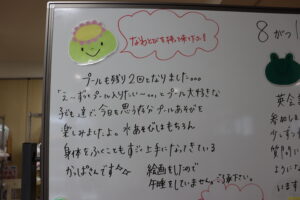 プールも残り2回となりました…。
「え〜ずっとプール入りたい〜…」とプール大好きな
子ども達で、今日も思う存分プールあそびを
楽しみましたよ。水あそびはもちろん
身体をふくことも すごく上手になってきている
かっぱさんです☆
絵画をしたので
午睡をしていません。ご了承下さい。
8月が
英会
参加しま
少しずつ
質問に
ようにな
います